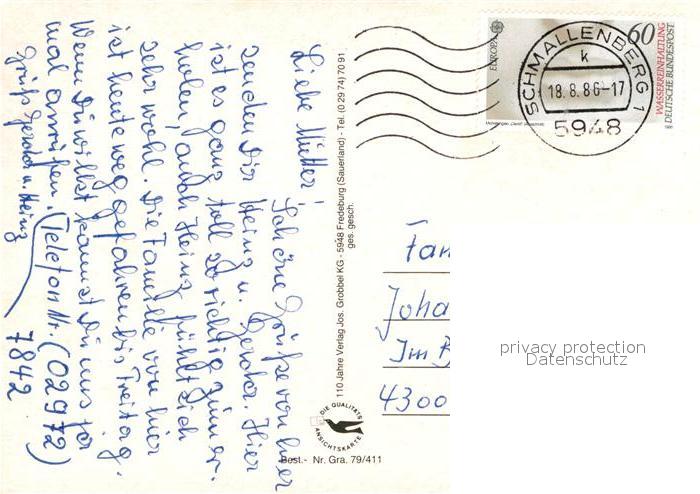 Liebe Mutter!
Schöne Grüße von hier
senden Dir Heinz u. Gerda. Hier
ist es ganz toll so richtig zum er-
holen, auch Heinz fühlt sich
sehr wohl. Die Familie von hier
ist heute weg gefahren bis Freitag.
Wenn Du willst kannst Du uns ja
mal anrufen. (Telefon Nr. (02972)
7842
Grüß Gerda u. Heinz
110 Jahre Verlag Jos. Grobbel KG - 5948 Fredeburg (Sauerland) - Tel. (0 29 74) 70 91
ges. gesch.
DIE QUALITÄTS
ANSICHTSKARTE
Best.- Nr. Gra. 79/411
EUROPA
60
WASSERREINHALTUNG
DEUTSCHE BUNDESPOST
SCHMALLENBERG 1
k
18.8.86-17
5948
Fam
Joha
Im B
4300
privacy protection
Datenschutz